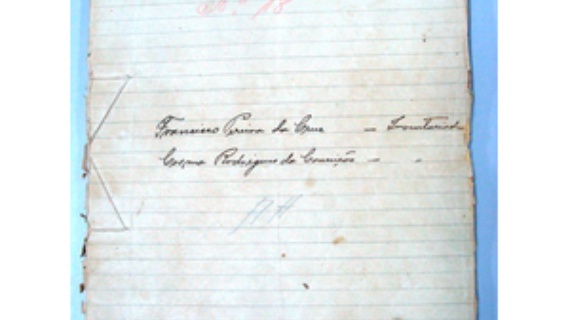 Nº 18
Francisco Pereira da Cruz —
Cosma Rodrigues da Conceição — "